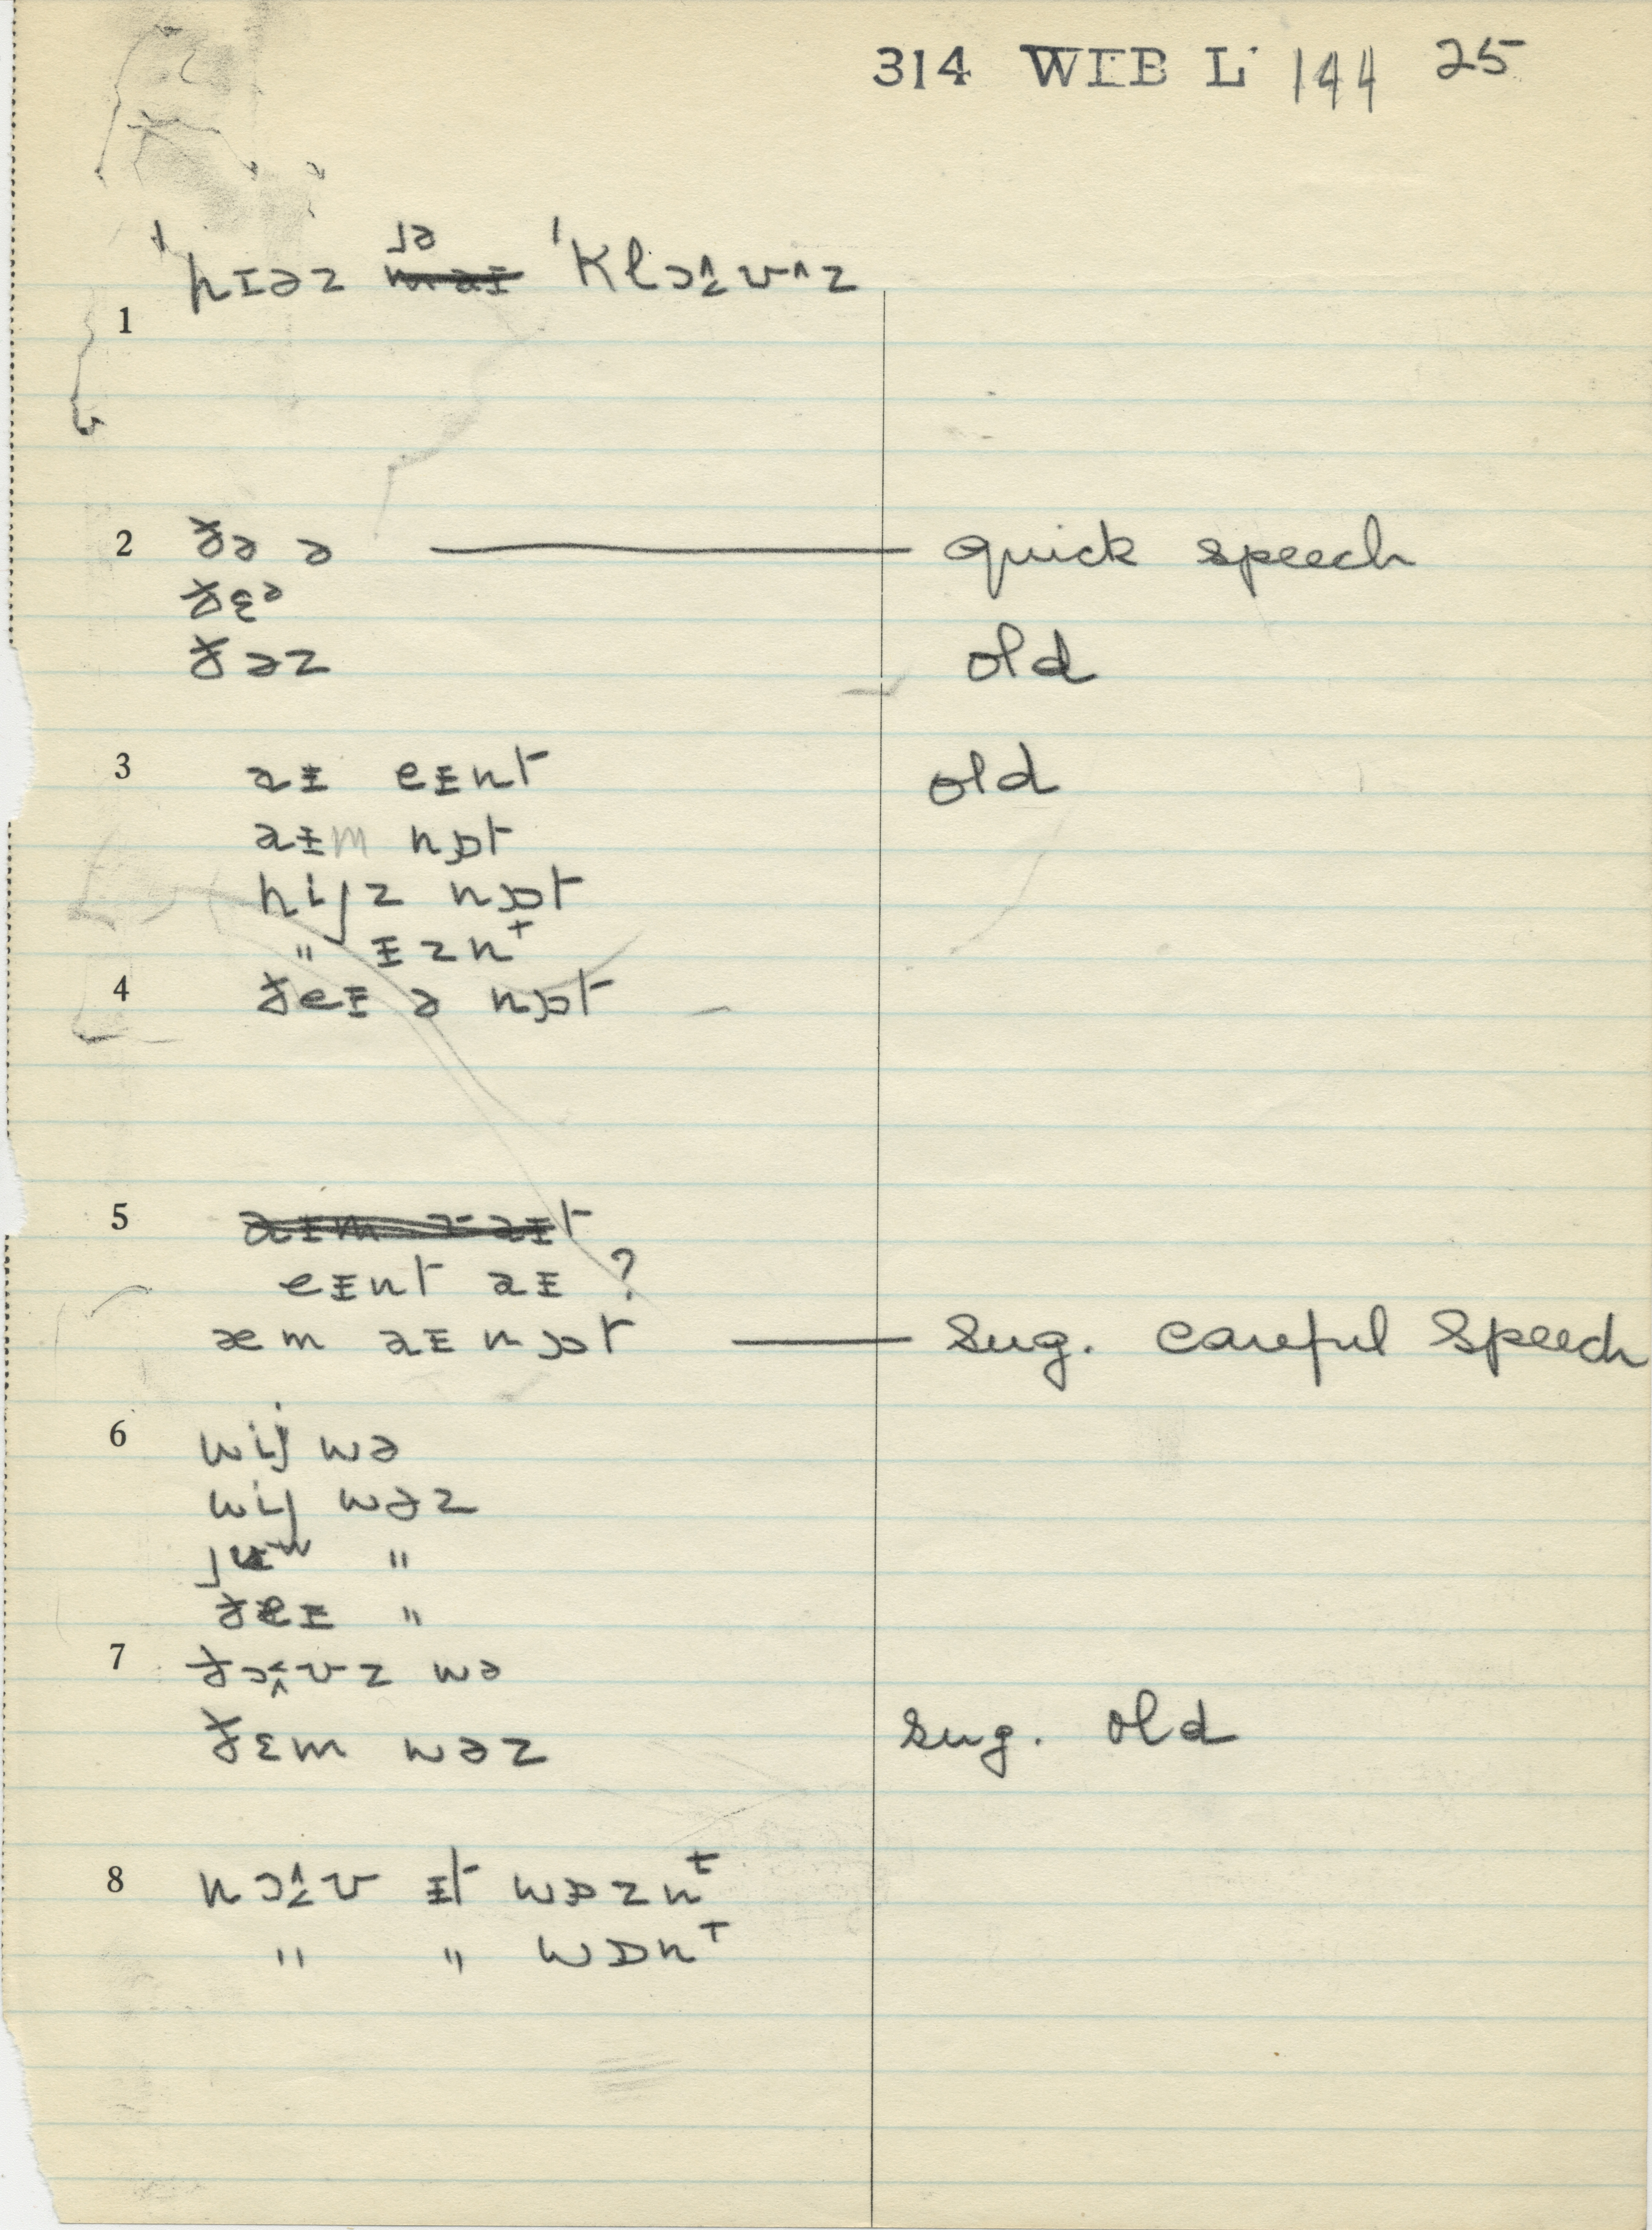 314 WIB L 144 25
jə
ˈhɪəz ~~maɪ~~ ˈklɔʊz
1
2 ðə ə — quick speech
ðɛᵊ
ðəz old
3 aɪ eɪnt old
aɪm nɒt
hijz nɒt
" ɪznᵗ
4 ðeɪ ə nɒt
5
eɪnt aɪ ?
æm aɪ nɒt — sug. careful speech
6 wij wə
wij wəz
"
ðeɪ "
7 ðɔʊz wə
ðɛm wəz sug. old
8 nɔʊ ɪt wɒznᵗ
" " wɒnᵗ